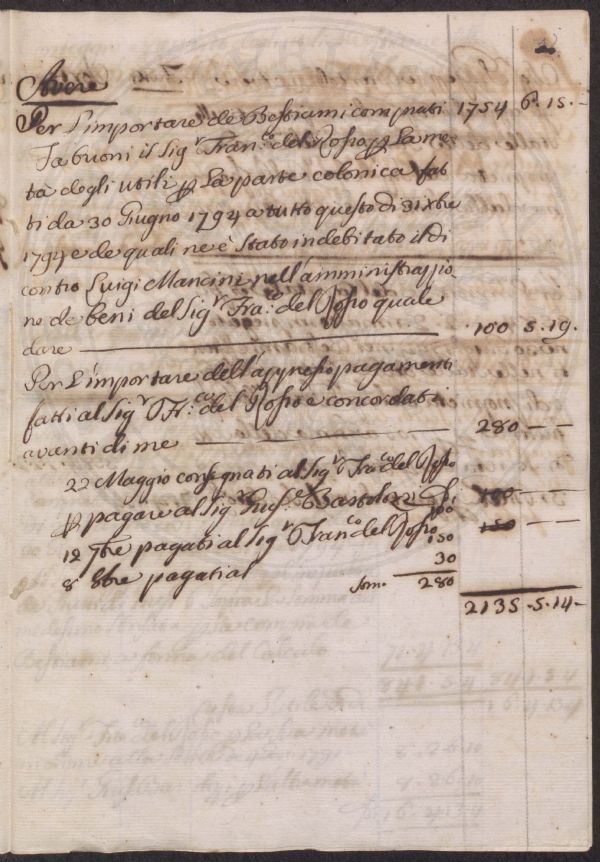 Avere
Per L'importare de Bestiami comprati 1754 6. 15. —
Fa buoni il Sig.r Fran.co del Rosso p La me=
tà degli utili p La parte colonica fat
ti da 30 Giugno 1794 a tutto questo dì 31 Xbre
1794 e de quali ne è Stato indebitato il di
contro Luigi Mancini nell'amministrazio
ne de beni del Sig.r Fra.co del Rosso quale
dare — 100 5. 19.
Per L'importare dell'appresso pagamenti
fatti al Sig.r Fr.co del Rosso e concordati
avanti di me — 280 — —
22 Maggio consegnati al Sig.r Fran.co del Rosso
p pagare al Sig.r Gius.e Bartolozzi 100
12 7bre pagati al Sig.r Fran.co del Rosso 150
8 8bre pagati al 30
Som.a 280
2135. 5. 14. —